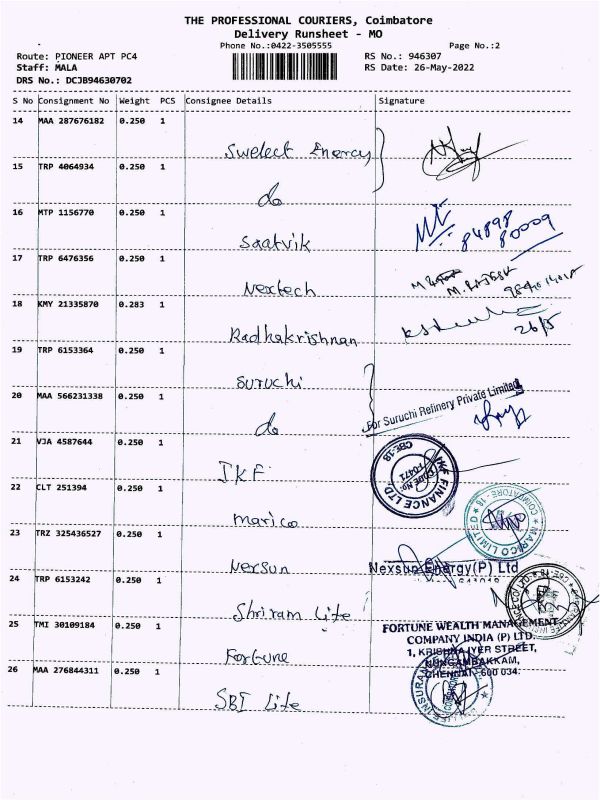 THE PROFESSIONAL COURIERS, Coimbatore
Delivery Runsheet - MO
Phone No.:0422-3505555 Page No.:2
Route: PIONEER APT PC4 RS No.: 946307
Staff: MALA RS Date: 26-May-2022
DRS No.: DCJB94630702
S No Consignment No Weight PCS Consignee Details Signature
14 MAA 287676182 0.250 1
Swelect Energy
15 TRP 4064934 0.250 1
do
16 MTP 1156770 0.250 1
Saatvik 84898 80009
17 TRP 6476356 0.250 1
Nextech
18 KMY 21335870 0.283 1
Radhakrishnan 26/5
19 TRP 6153364 0.250 1
Suruchi
20 MAA 566231338 0.250 1
For Suruchi Refinery Private Limited
do
21 VJA 4587644 0.250 1
IKF
IKF FINANCE LTD CBE-18
22 CLT 251394 0.250 1
Marico
MARICO LIMITED COIMBATORE - 18
23 TRZ 325436527 0.250 1
Nexsun Nexsun Energy(P) Ltd
24 TRP 6153242 0.250 1
Shriram Life
25 TMI 30109184 0.250 1
FORTUNE WEALTH MANAGEMENT
COMPANY INDIA (P) LTD.
1, KRISHNA IYER STREET,
Fortune NUNGAMBAKKAM,
CHENNAI - 600 034.
26 MAA 276844311 0.250 1
SBI Life